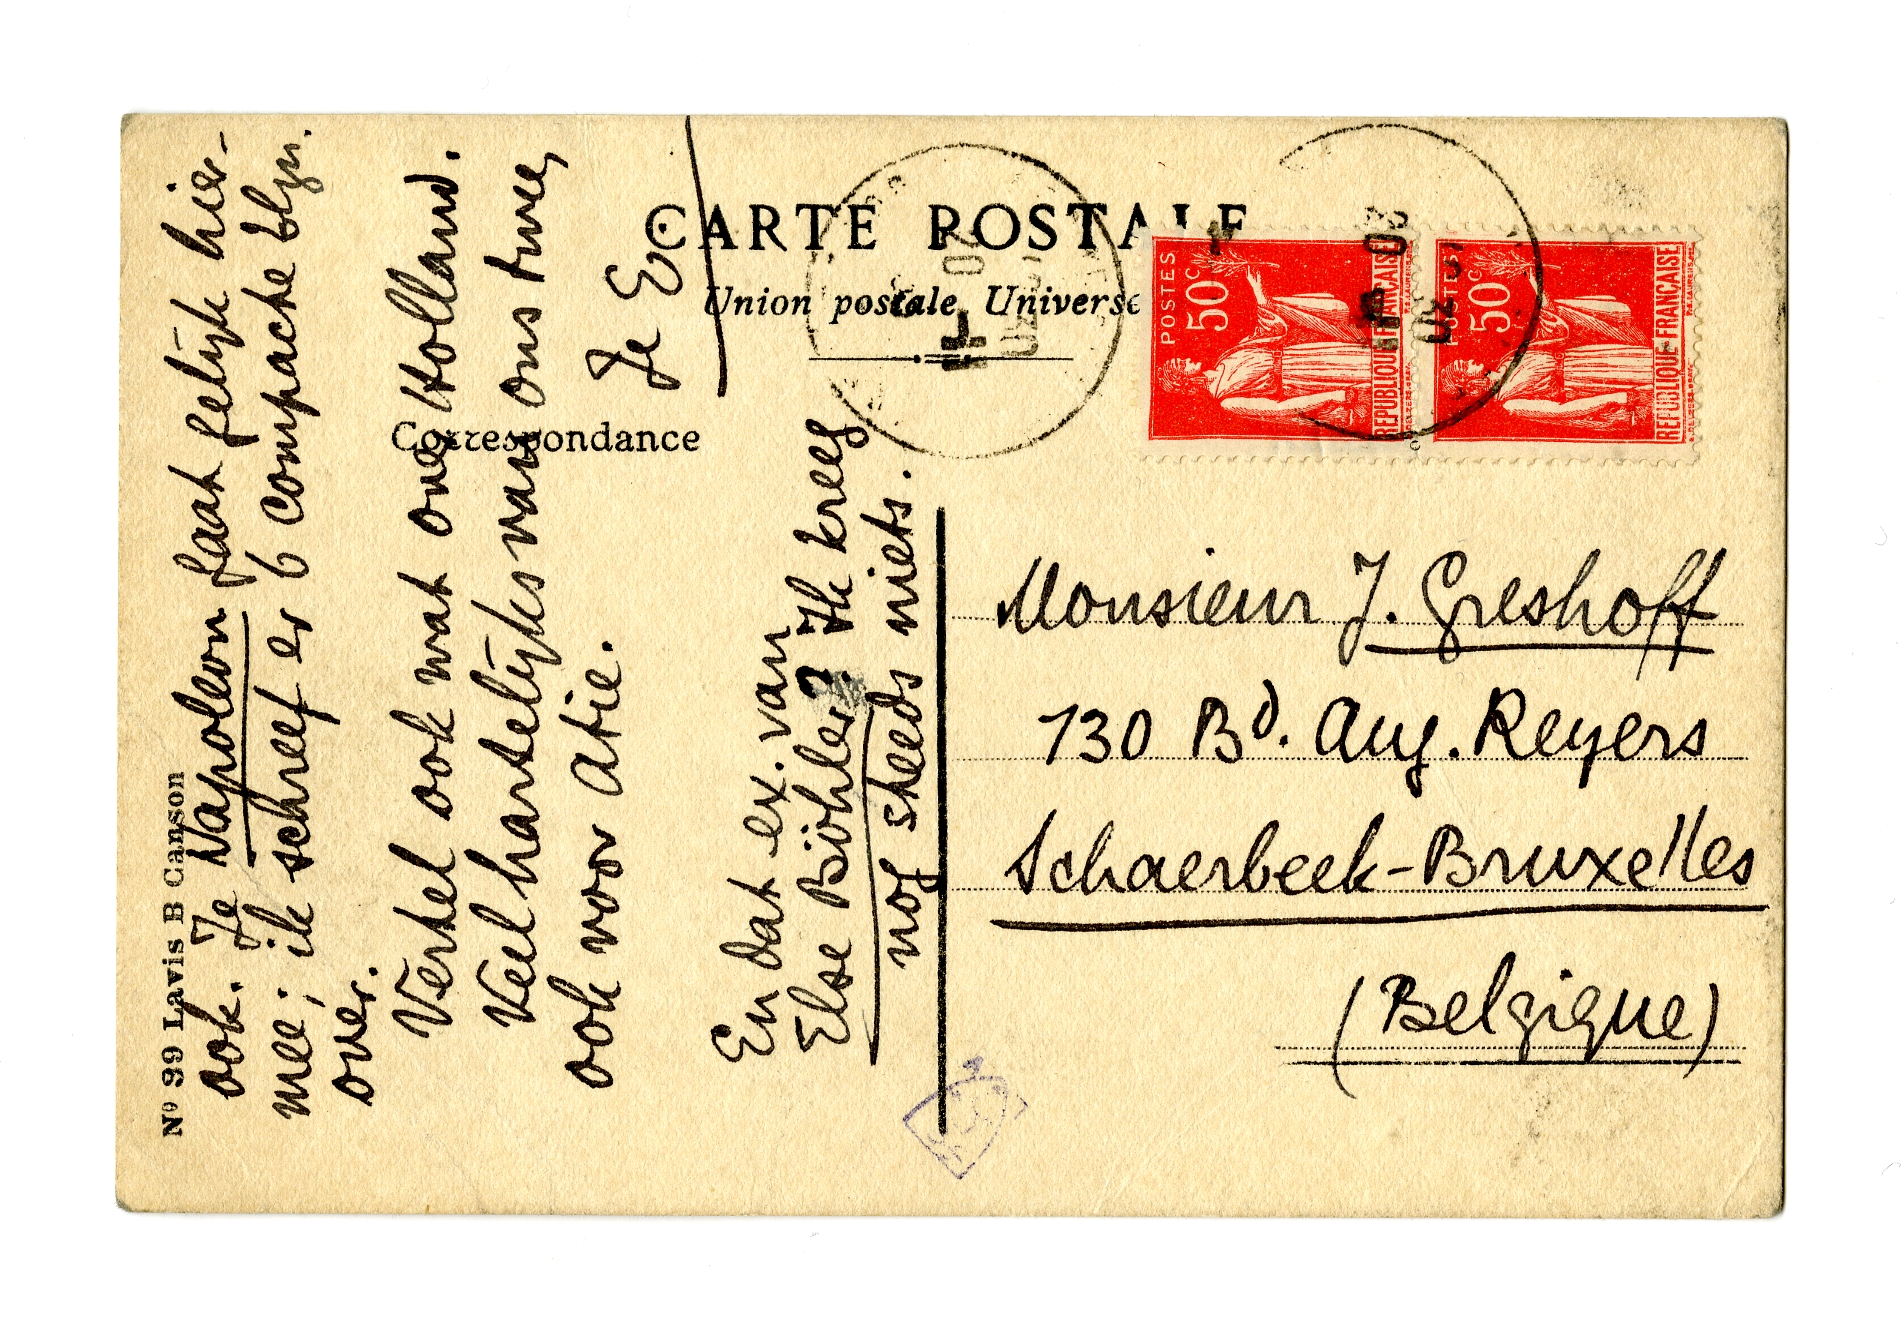 CARTE POSTALE
Union postale Universe
Correspondance
No 99 Lavis B Canson
ook. Je Napoleon gaat gelijk hier-
mee; ik schreef er 6 compacte blzn.
over.
Vertel ook wat over Holland.
Veel hartelijks van ons twee,
ook voor Atie.
Je E
En dat ex. van
Else Böhler? Ik kreeg
nog steeds niets.
POSTES
50c
REPUBLIQUE FRANÇAISE
POSTES
50c
REPUBLIQUE FRANÇAISE
Monsieur J. Greshoff
130 Bd. Aug. Reyers
Schaerbeek-Bruxelles
(Belgique)